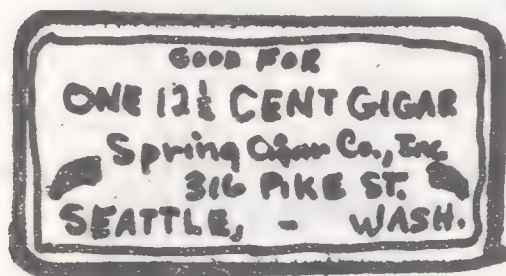 GOOD FOR
ONE 12½ CENT GIGAR
Spring Cigar Co., Inc
316 PIKE ST.
SEATTLE, - WASH.